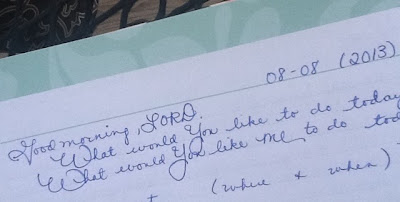 08-08 (2013)
Good morning, LORD.
What would You like to do today
What would You like me to do tod
(where & when)